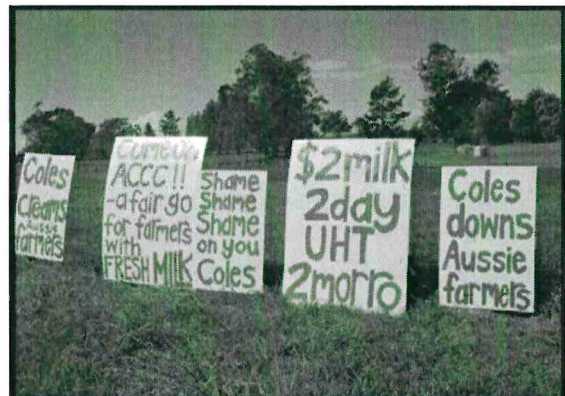 Coles
creams
Aussie
farmers
Come on
ACCC!!
-a fair go
for farmers
with
FRESH MILK
Shame
Shame
Shame
on you
Coles
$2milk
2day
UHT
2morro
Coles
downs
Aussie
farmers